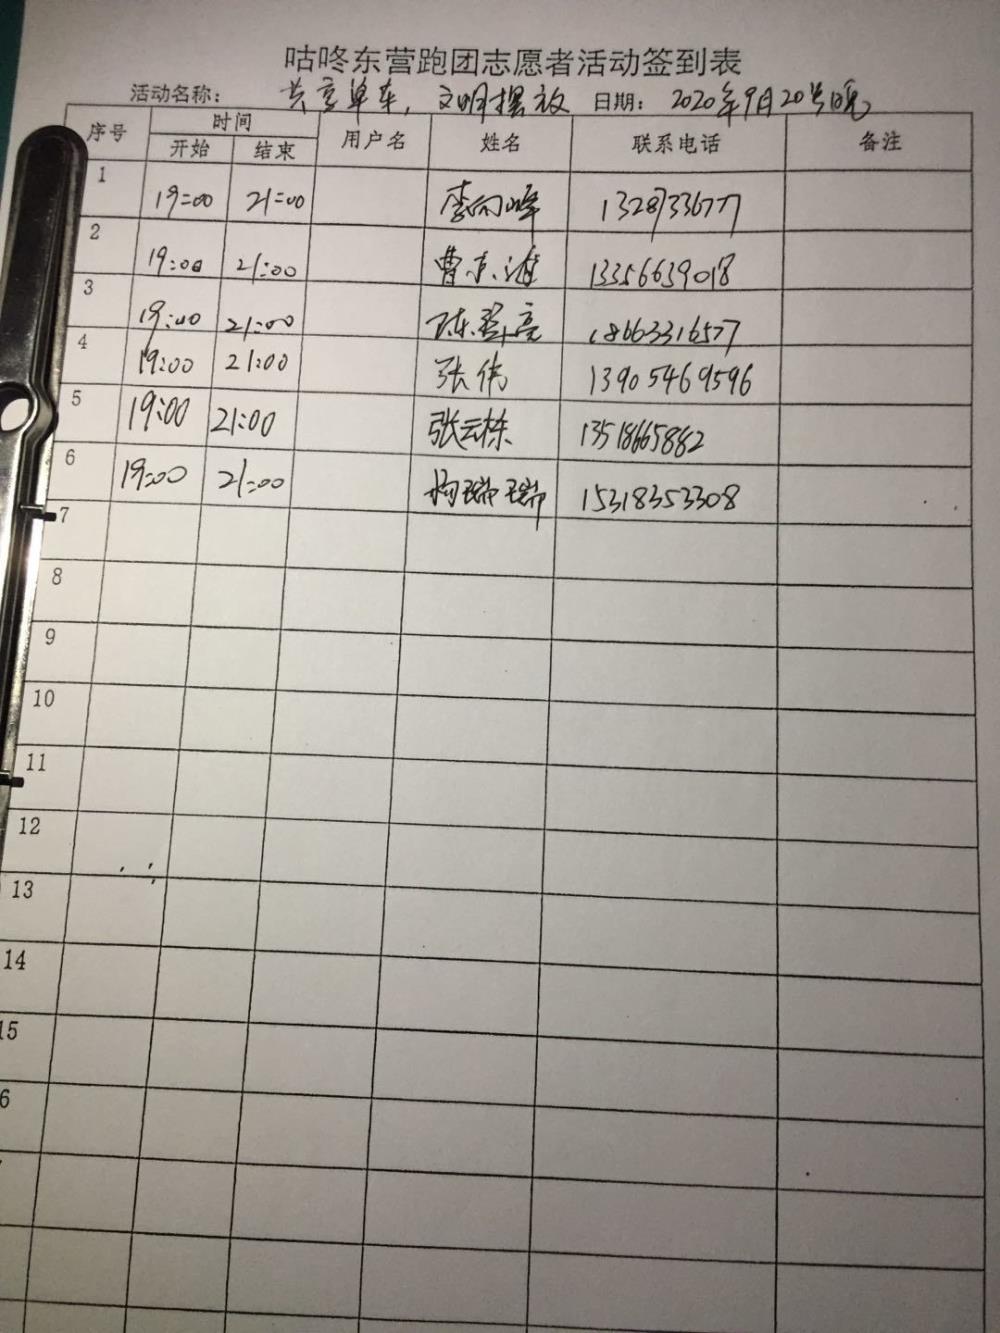 咕咚东营跑团志愿者活动签到表
活动名称: 共享单车,文明摆放 日期: 2020年9月20号晚
序号 时间 用户名 姓名 联系电话 备注
开始 结束
1 19:00 21:00 李向峰 13287336777
2 19:00 21:00 曹 13356639018
3 19:00 21:00 陈翠亮 18663316577
4 19:00 21:00 张伟 13905469596
5 19:00 21:00 张云栋 13518665882
6 19:00 21:00 杨瑞瑞 15318353308
7
8
9
10
11
12
13
14
15
6